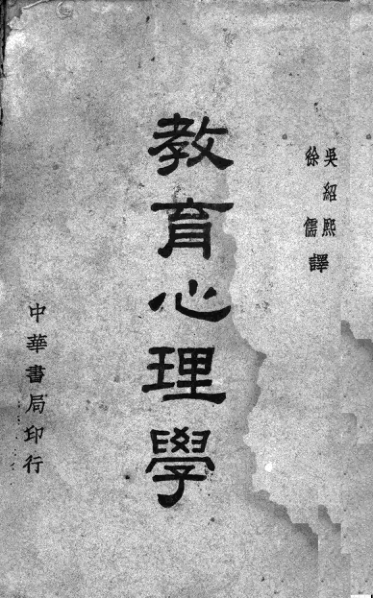 吳紹熙
徐儒
譯
教育心理學
中華書局印行